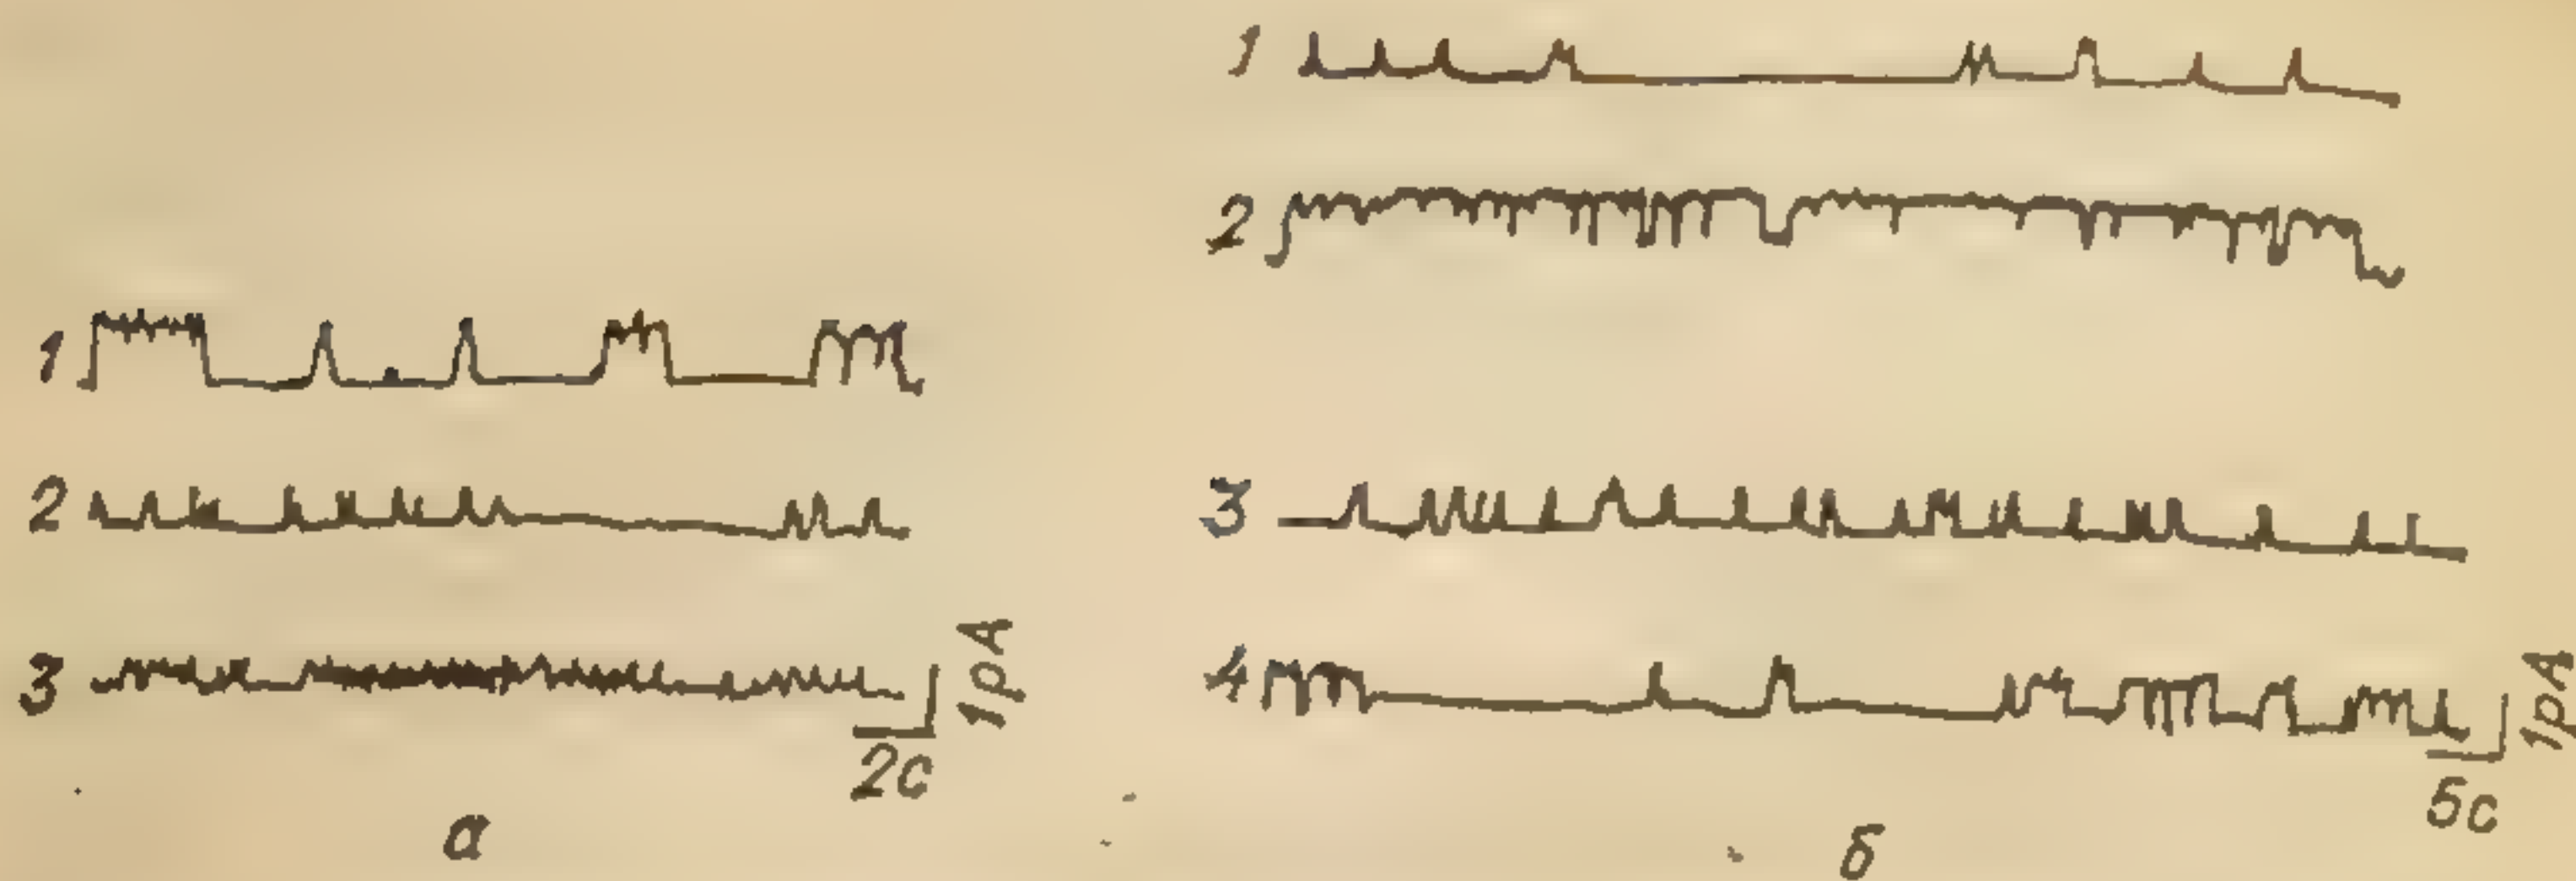 1
2
3
1pA
2c
a
1
2
3
4
1pA
5c
б